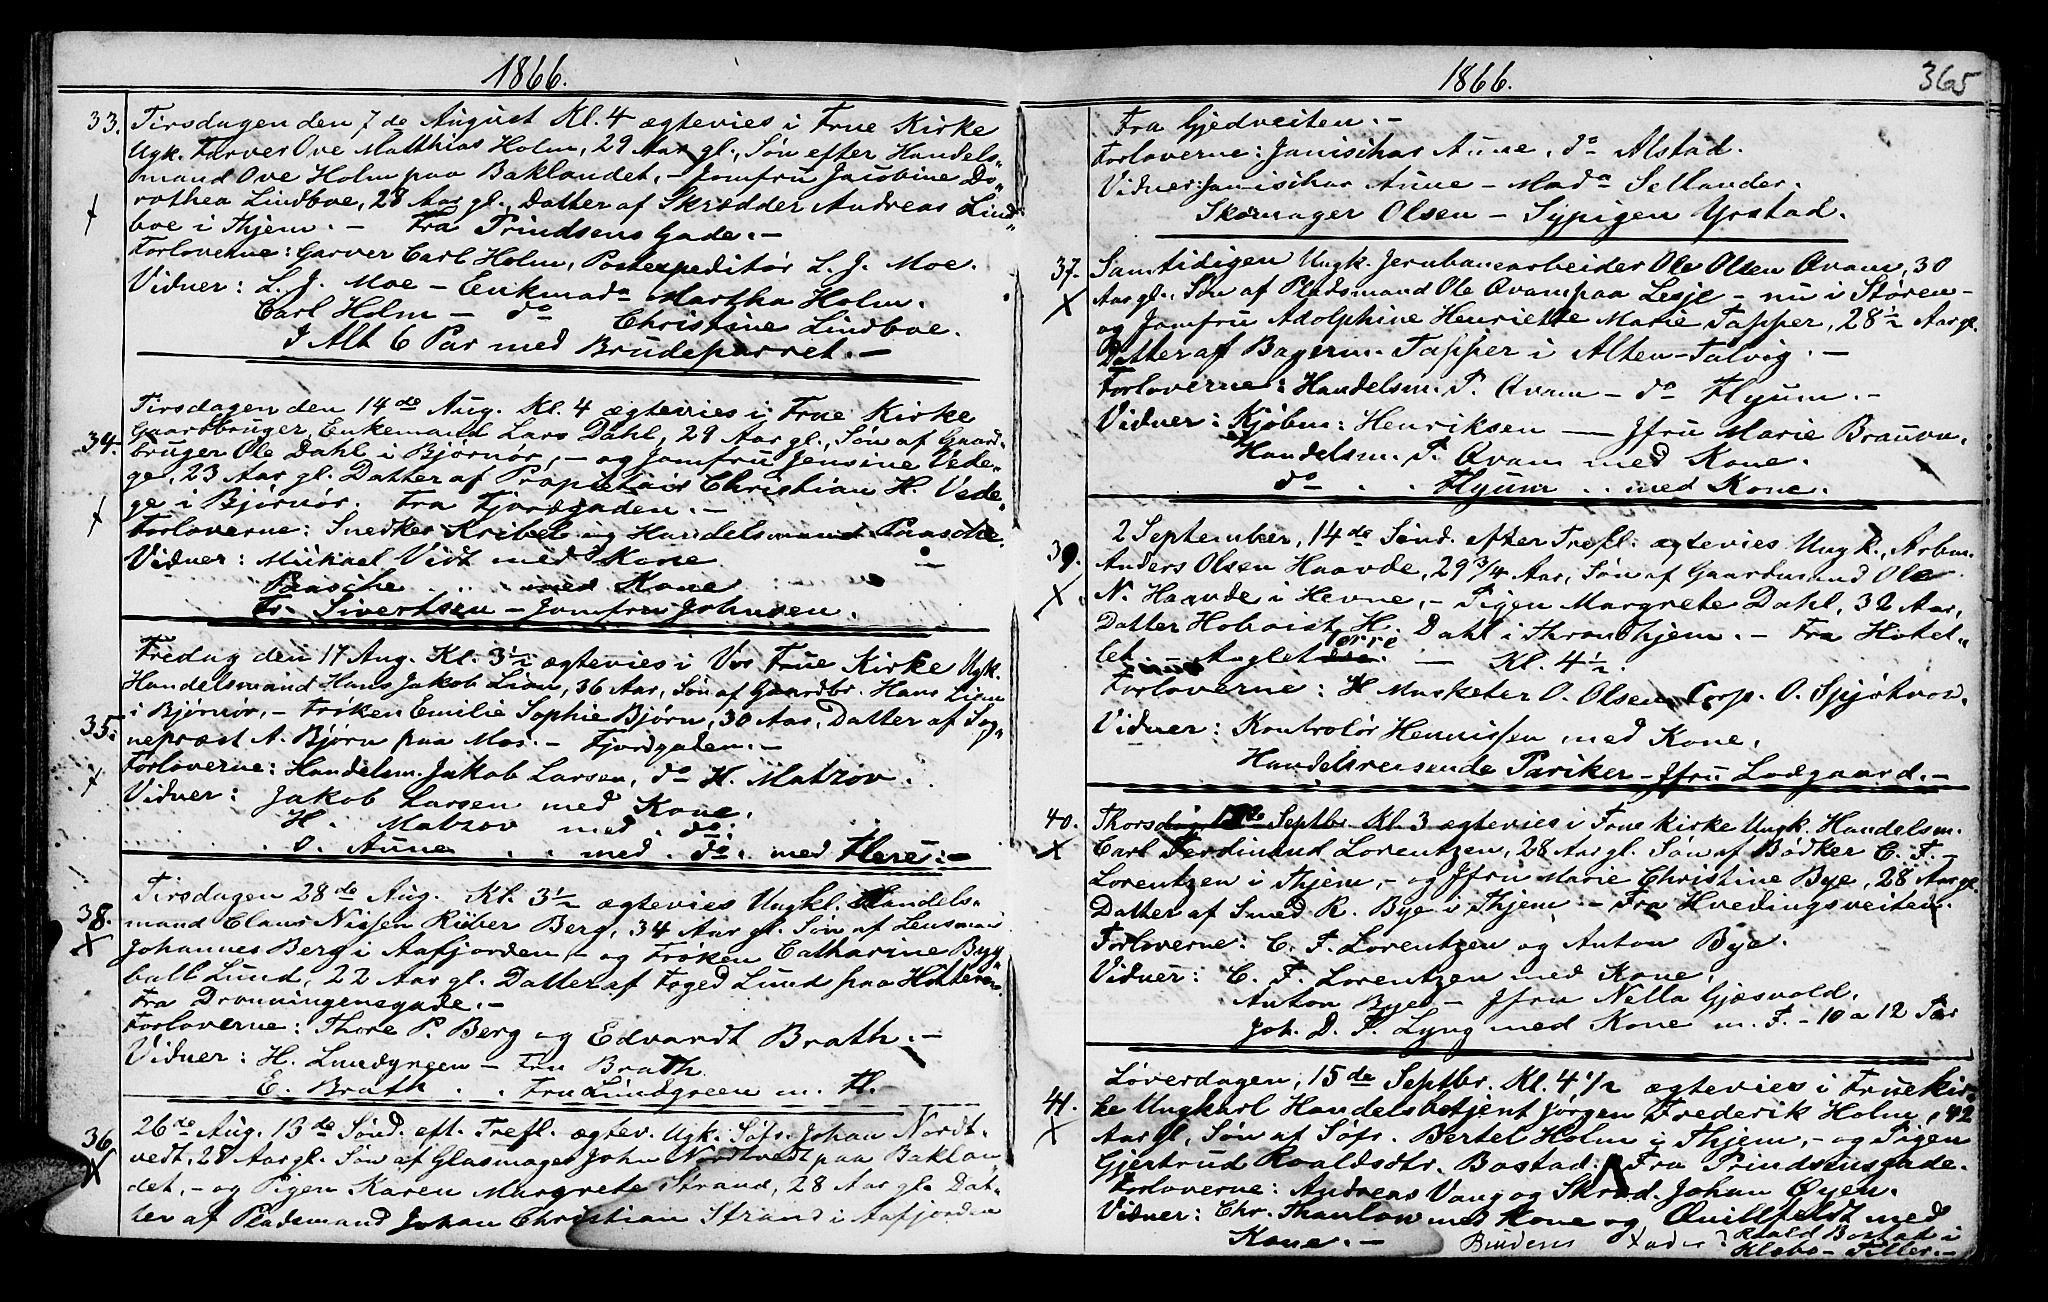 1866.
33. Tirsdagen den 7de August Kl. 4 ægtevies i Frue Kirke
Ugk. Farver Ove Matthias Holm, 29 Aar gl., Søn efter Handels„
mand Ove Holm paa Baklandet, - Jomfru Jacobine Do„
rothea Lindboe, 28 Aar gl., Datter af Skrædder Andreas Lind„
boe i Thjem. - Fra Prindsens Gade. -
Forloverne: Garver Carl Holm, Postexpeditør L. J. Moe.
Vidner: L. J. Moe - Enkmada Martha Holm.
Carl Holm - do Christine Lindboe.
I Alt 6 Par med Brudeparret. -
Tirsdagen den 14de Aug. Kl. 4 ægtevies i Frue Kirke
34. Gaardbruger, Enkemand Lars Dahl, 29 Aar gl., Søn af Gaard„
bruger Ole Dahl i Bjørnør, - og Jomfru Jensine Vede„
ge, 23 Aar gl. Datter af Propietair Christian H. Vede„
ge i Bjørnør. Fra Fjordgaden. -
Forloverne: Snedker Kribel og Handelsmand Paasche.
Vidner: Michael Vidt med Kone
Paasche . . med Kone
Fr. Sivertsen - Jomfru Johnsen.
Fredag den 17 Aug. Kl. 3 1/2 ægtevies i Vor Frue Kirke Ugk.
Handelsmand Hans Jakob Lian, 36 Aar, Søn af Gaardbr. Hans Lian
35. i Bjørnør, - Frøken Emilie Sophie Bjørn, 30 Aar, Datter af Sog„
nepræst A. Bjørn paa Mos. - Fjordgaden. -
Forloverne: Handelsm. Jakob Larsen, do H. Matzov.
Vidner: Jakob Larsen med Kone,
H. Matzov med do.
O. Aune . . med do. med Flere. -
Tirsdagen 28de Aug. Kl. 3 1/2 ægtevies Ungkl. Handels„
38. mand Claus Nissen Riiber Berg, 34 Aar gl. Søn af Lensman
Johannes Berg i Aafjorden, - og Frøken Catharine Byg„
ball Lund, 22 Aar gl. Datter af Foged Lund paa
Fra Dronningensgade. -
Forloverne: Thore P. Berg og Edvardt Brath. -
Vidner: H. Lundgreen - Fru Brath.
E. Brath . . Fru Lundgreen m. Fl.
36. 26de Aug. 13de Sønd. eft. Trefl. ægtev. Ugk. Søfr. Johan Nordt„
vedt, 28 Aar gl. Søn af Glasmager John Nordtvedt paa Baklan
det, - og Pigen Karen Margrete Strand, 28 Aar gl. Dat„
ter af Pladsmand Johan Christian Strand i Aafjorden
1866. 365
Fra Gjedveiten. -
Forloverne: Janischar Aune, do Alstad.
Vidner: Janischar Aune - Mada Sellander.
Skomager Olsen - Sypigen Yrstad.
37. Samtidigen Ungk. Jernbanearbeider Ole Olsen Qvam, 30
Aar gl., Søn af Pladsmand Ole Qvam paa Lesje - nu i Støren -
og Jomfru Adolphine Henriette Marie Tapper, 28 1/2 Aar gl.
Datter af Bagerm. Tapper i Alten-Talvig. -
Forloverne: Handelsm. P. Qvam - do Flyum. -
Vidner: Kjøbm: Henriksen - Jfru Marie Brauvn.
Handelsm. P. Qvam med Kone.
do . . Flyum . . med Kone.
2 September, 14de Sønd. efter Trefl. ægtevies Ungk., Arbm.
39. Anders Olsen Haavde, 29 3/4 Aar, Søn af Gaardmand Ole
N. Haavde i Hevne, - Pigen Margrete Dahl, 32 Aar,
Datter H. Dahl i Throndhjem. - Fra Hotel„
let - Anglet - Kl. 4 1/2.
Forloverne: Musketer O. Olsen, Corp. O. Spjøtvold.
Vidner: Kontrolør Hennissen med Kone,
Handelsreisende Pariker - Jfru Lodgaard. -
40. Thorsdag Septbr. Kl. 3 ægtevies i Frue Kirke Ungk. Handelsm.
Carl Ferdinand Lorentzen, 28 Aar gl. Søn af Bødker C. F.
Lorentzen i Thjem, - og Jfru Marie Christine Bye, 28 Aar gl.
Datter af Smed R. Bye i Thjem - Fra Hvedingsveiten.
Forloverne: C. F. Lorentzen og Anton Bye.
Vidner: C. F. Lorentzen med Kone,
Anton Bye - Jfru Nella Gjæsvold.
Joh. D. P. Lyng med Kone m. F. - 10 a 12 Par
Løverdagen, 15de Septbr. Kl. 4 1/2 ægtevies i Frue Kir„
41. ke Ungkarl Handelsbetjent Jørgen Frederik Holm, 42
Aar gl, Søn af Søfr. Bertel Holm i Thjem, - og Pigen
Gjertrud Roaldsdtr. Bostad. Fra Prindsensgade.
Forloverne: Andreas Vang og Skræd. Johan Øyen.
Vidner: Chr. Thanlow med Kone og Qvillfeldt med
Kone. - Brudens Fader: Roald Bostad i
Klæbo - Tiller. -